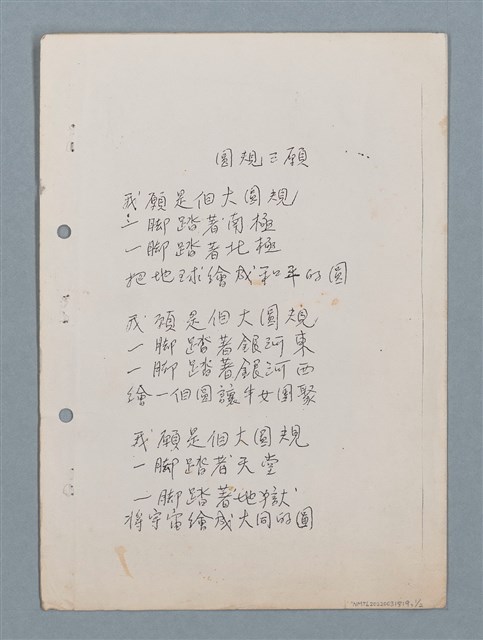 圓規三願
我願是個大圓規
一脚踏著南極
一脚踏著北極
把地球繪成和平的圓
我願是個大圓規
一脚踏著銀河東
一脚踏著銀河西
繪一個圓讓牛女團聚
我願是個大圓規
一脚踏著天堂
一脚踏著地獄
將宇宙繪成大同的圓